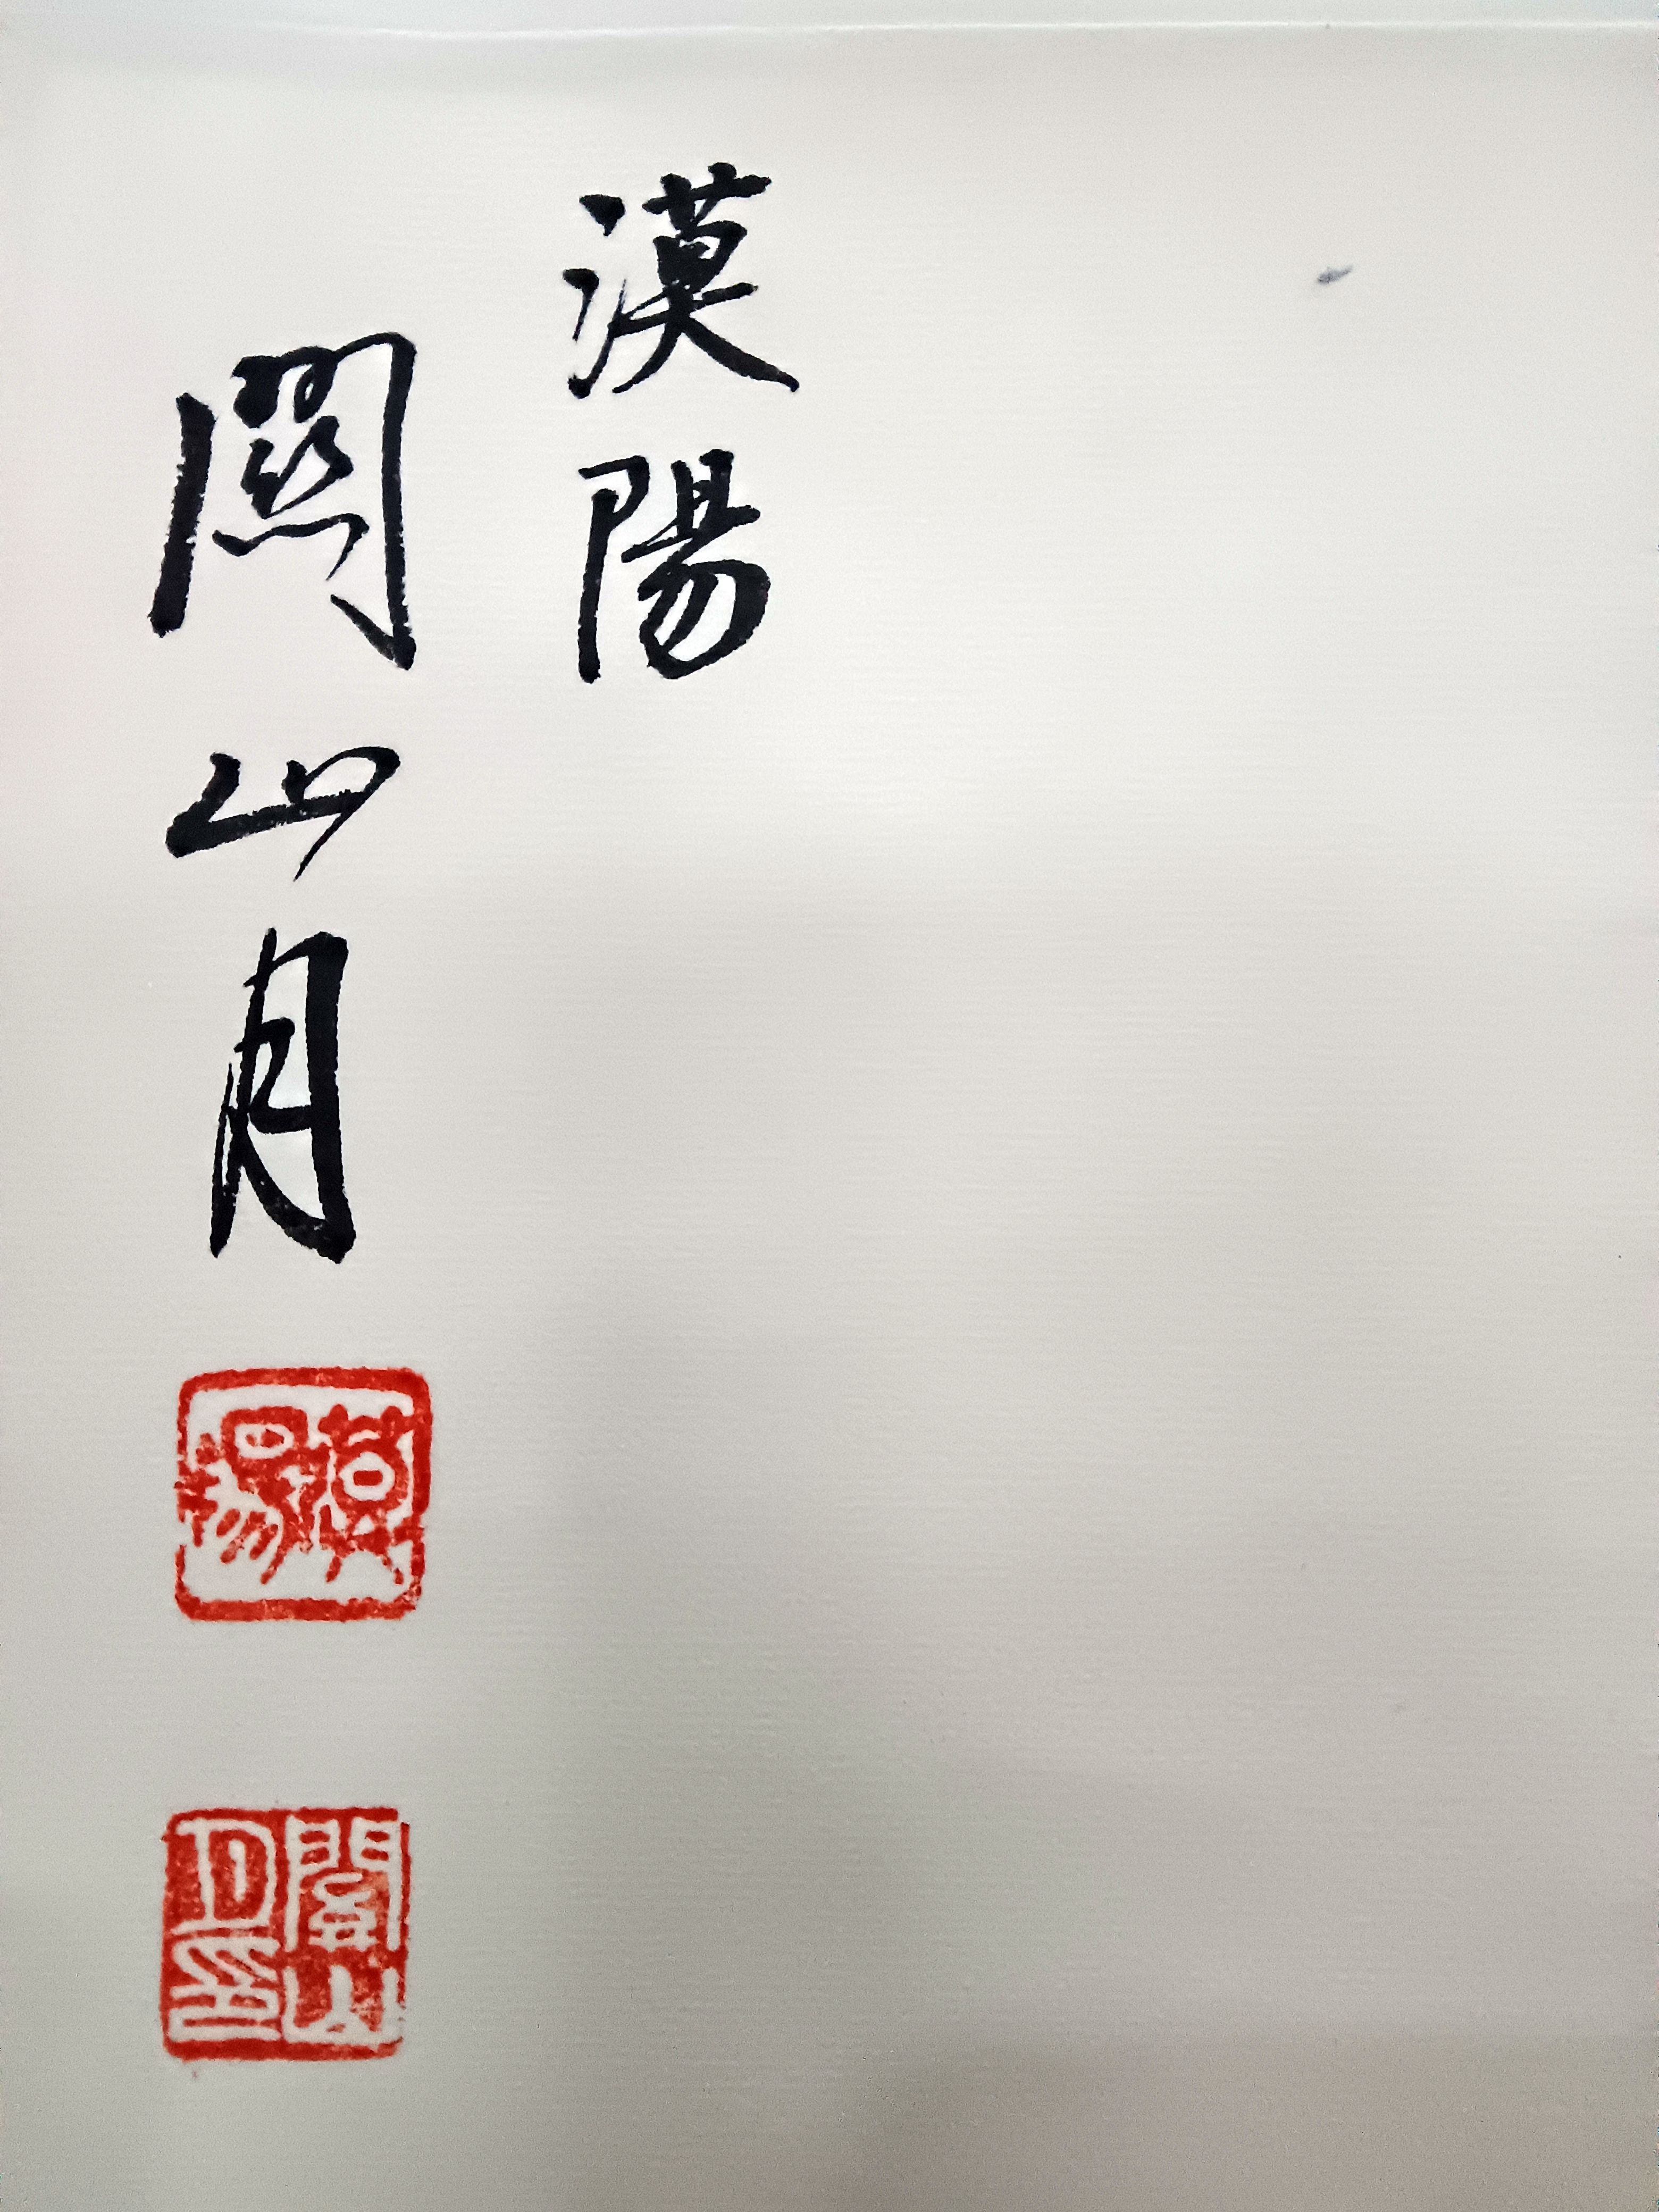 漠陽
關山月
漠陽
關山月印